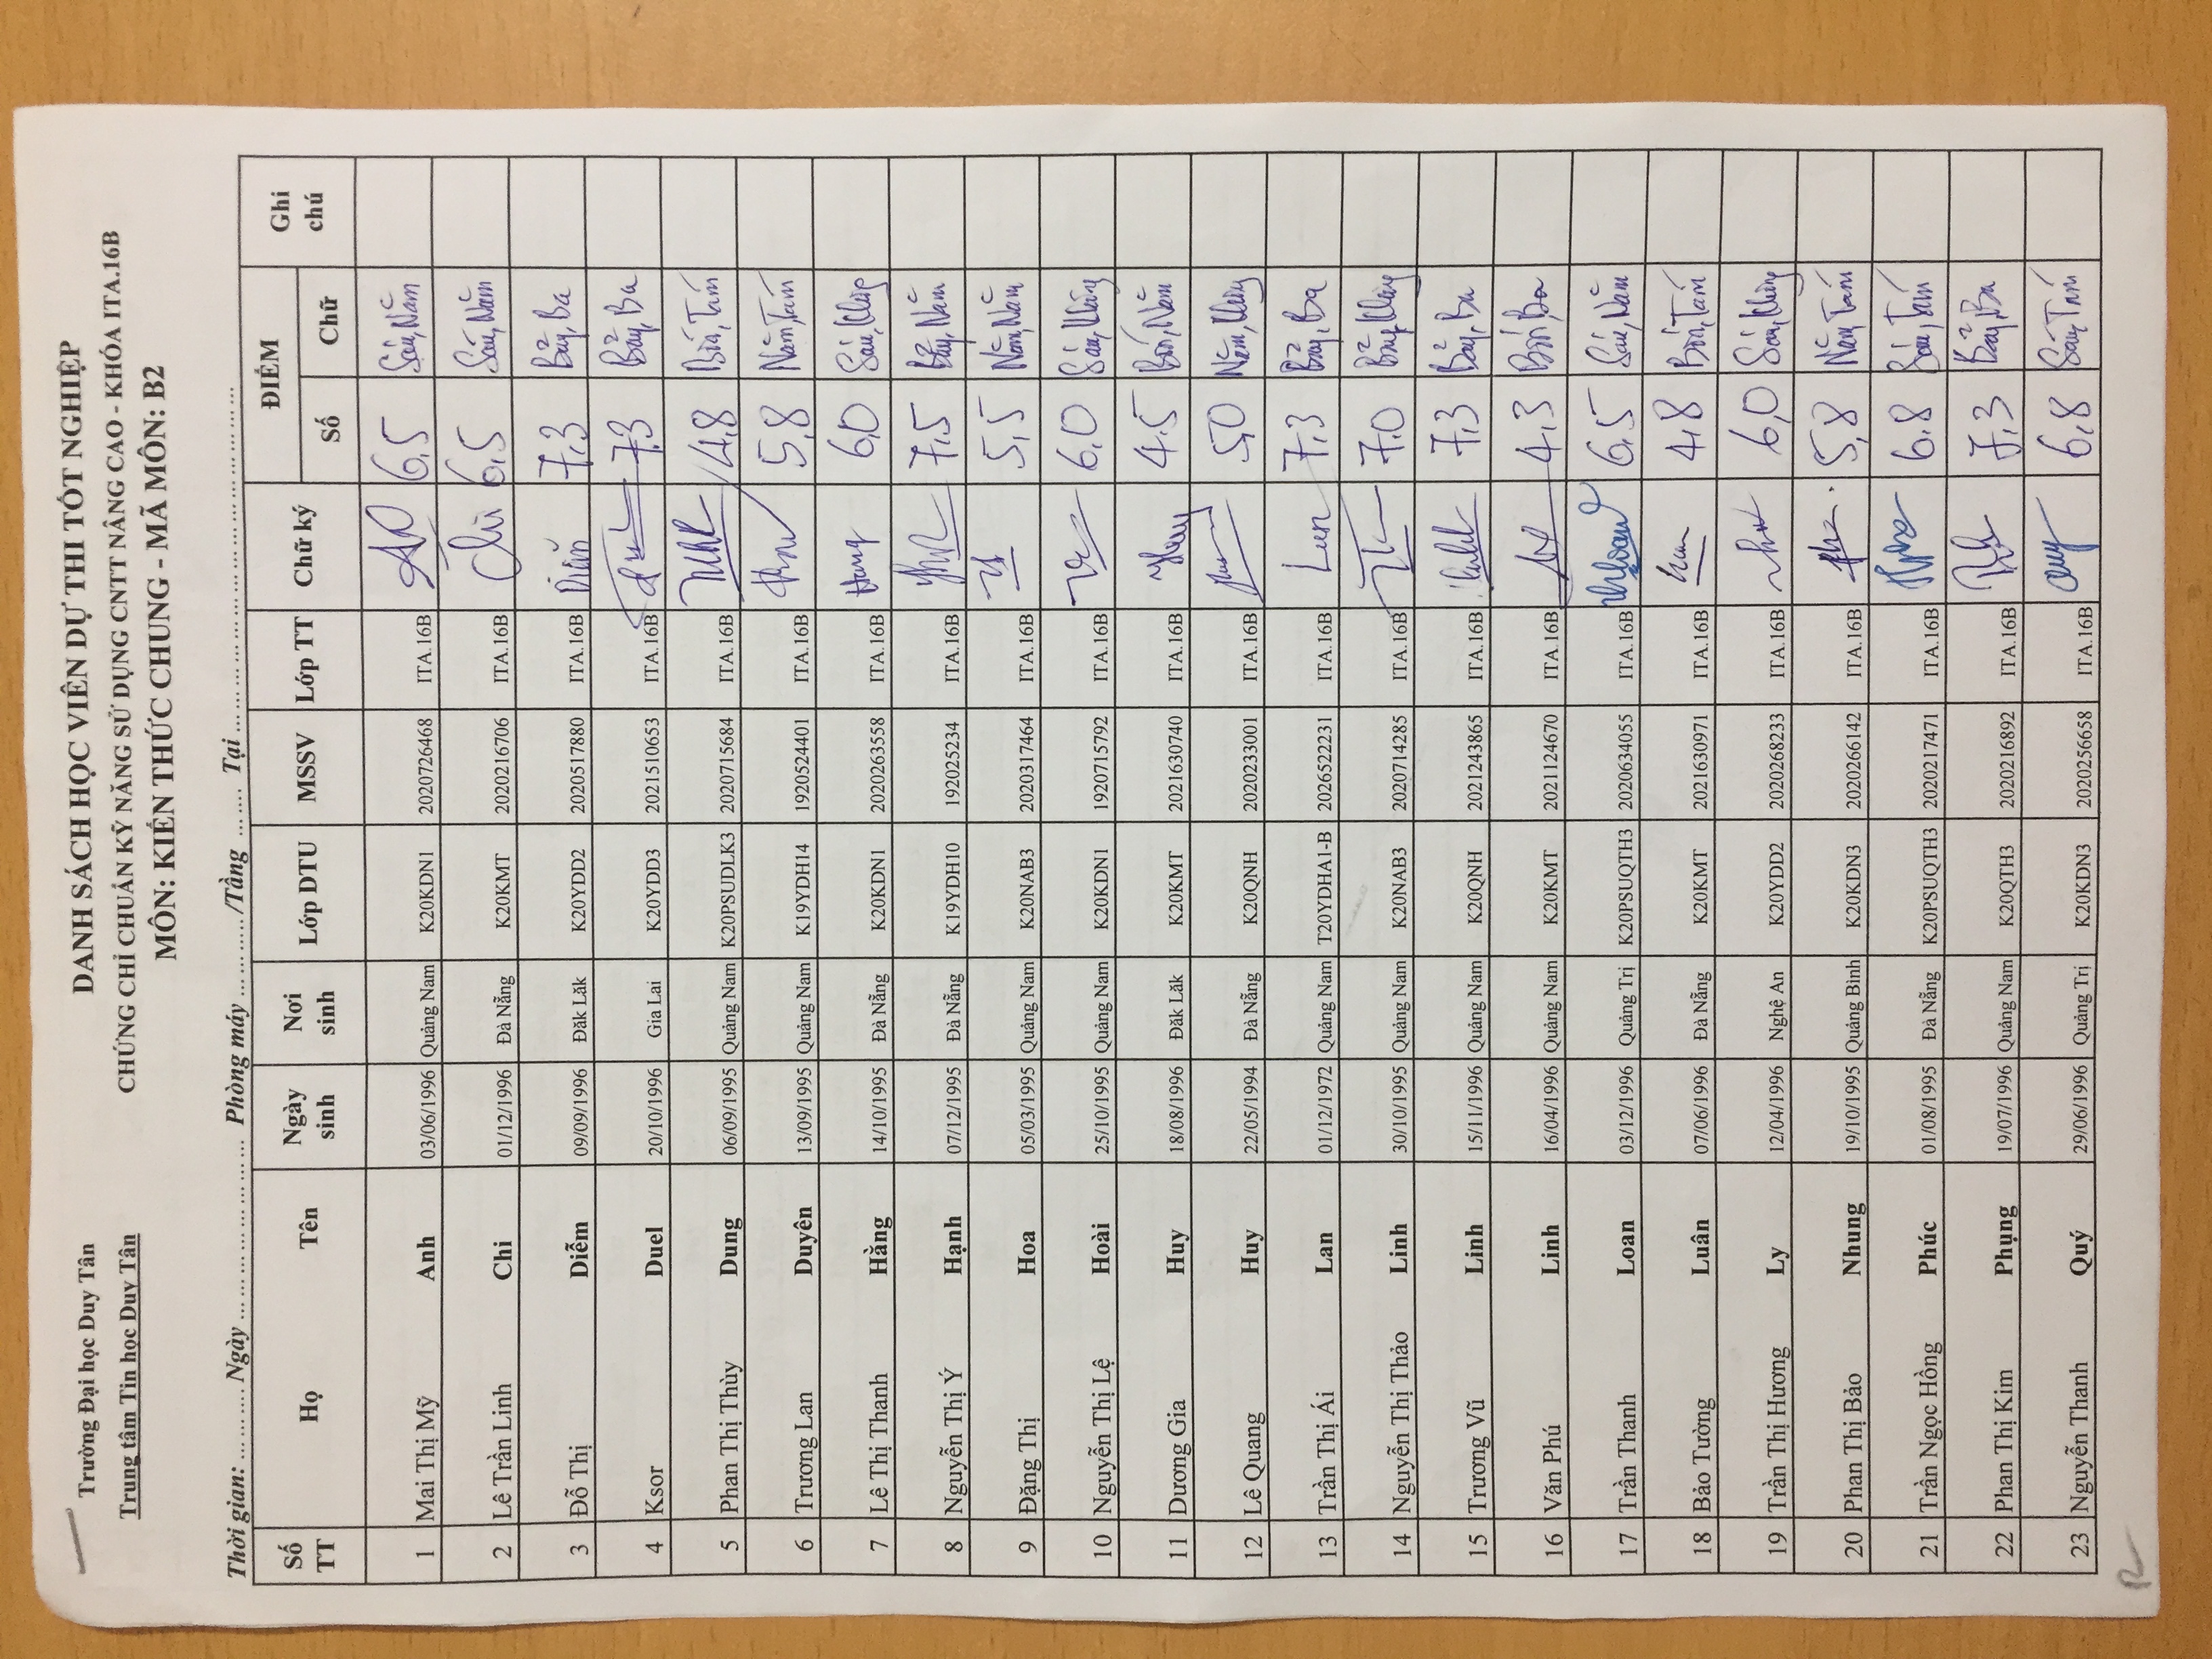 Trường Đại học Duy Tân
Trung tâm Tin học Duy Tân
DANH SÁCH HỌC VIÊN DỰ THI TỐT NGHIỆP
CHỨNG CHỈ CHUẨN KỸ NĂNG SỬ DỤNG CNTT NÂNG CAO - KHÓA ITA.16B
MÔN: KIẾN THỨC CHUNG - MÃ MÔN: B2
Thời gian: ............ Ngày ........................ Phòng máy ............/Tầng ...... Tại ....................................
Số TT Họ Tên Ngày sinh Nơi sinh Lớp DTU MSSV Lớp TT Chữ ký ĐIỂM Số Chữ Ghi chú
1 Mai Thị Mỹ Anh 03/06/1996 Quảng Nam K20KDN1 2020726468 ITA.16B 6,5 Sáu, Năm
2 Lê Trần Linh Chi 01/12/1996 Đà Nẵng K20KMT 2020216706 ITA.16B Chi 6,5 Sáu, Năm
3 Đỗ Thị Diễm 09/09/1996 Đăk Lăk K20YDD2 2020517880 ITA.16B Diễm 7,3 Bảy, Ba
4 Ksor Duel 20/10/1996 Gia Lai K20YDD3 2021510653 ITA.16B 7,3 Bảy, Ba
5 Phan Thị Thùy Dung 06/09/1995 Quảng Nam K20PSUDLK3 2020715684 ITA.16B 4,8 Bốn, Tám
6 Trương Lan Duyên 13/09/1995 Quảng Nam K19YDH14 1920524401 ITA.16B 5,8 Năm, Tám
7 Lê Thị Thanh Hằng 14/10/1995 Đà Nẵng K20KDN1 2020263558 ITA.16B Hằng 6,0 Sáu, Không
8 Nguyễn Thị Ý Hạnh 07/12/1995 Đà Nẵng K19YDH10 192025234 ITA.16B 7,5 Bảy, Năm
9 Đặng Thị Hoa 05/03/1995 Quảng Nam K20NAB3 2020317464 ITA.16B 5,5 Năm, Năm
10 Nguyễn Thị Lệ Hoài 25/10/1995 Quảng Nam K20KDN1 1920715792 ITA.16B 6,0 Sáu, Không
11 Dương Gia Huy 18/08/1996 Đăk Lăk K20KMT 2021630740 ITA.16B 4,5 Bốn, Năm
12 Lê Quang Huy 22/05/1994 Đà Nẵng K20QNH 2020233001 ITA.16B 5,0 Năm, Không
13 Trần Thị Ái Lan 01/12/1972 Quảng Nam T20YDHA1-B 2026522231 ITA.16B Lan 7,3 Bảy, Ba
14 Nguyễn Thị Thảo Linh 30/10/1995 Quảng Nam K20NAB3 2020714285 ITA.16B 7,0 Bảy, Không
15 Trương Vũ Linh 15/11/1996 Quảng Nam K20QNH 2021243865 ITA.16B 7,3 Bảy, Ba
16 Văn Phú Linh 16/04/1996 Quảng Nam K20KMT 2021124670 ITA.16B 4,3 Bốn, Ba
17 Trần Thanh Loan 03/12/1996 Quảng Trị K20PSUQTH3 2020634055 ITA.16B 6,5 Sáu, Năm
18 Bảo Tường Luân 07/06/1996 Đà Nẵng K20KMT 2021630971 ITA.16B 4,8 Bốn, Tám
19 Trần Thị Hương Ly 12/04/1996 Nghệ An K20YDD2 2020268233 ITA.16B 6,0 Sáu, Không
20 Phan Thị Bảo Nhung 19/10/1995 Quảng Bình K20KDN3 2020266142 ITA.16B 5,8 Năm, Tám
21 Trần Ngọc Hồng Phúc 01/08/1995 Đà Nẵng K20PSUQTH3 2020217471 ITA.16B 6,8 Sáu, Tám
22 Phan Thị Kim Phụng 19/07/1996 Quảng Nam K20QTH3 2020216892 ITA.16B 7,3 Bảy, Ba
23 Nguyễn Thanh Quý 29/06/1996 Quảng Trị K20KDN3 2020256658 ITA.16B 6,8 Sáu, Tám